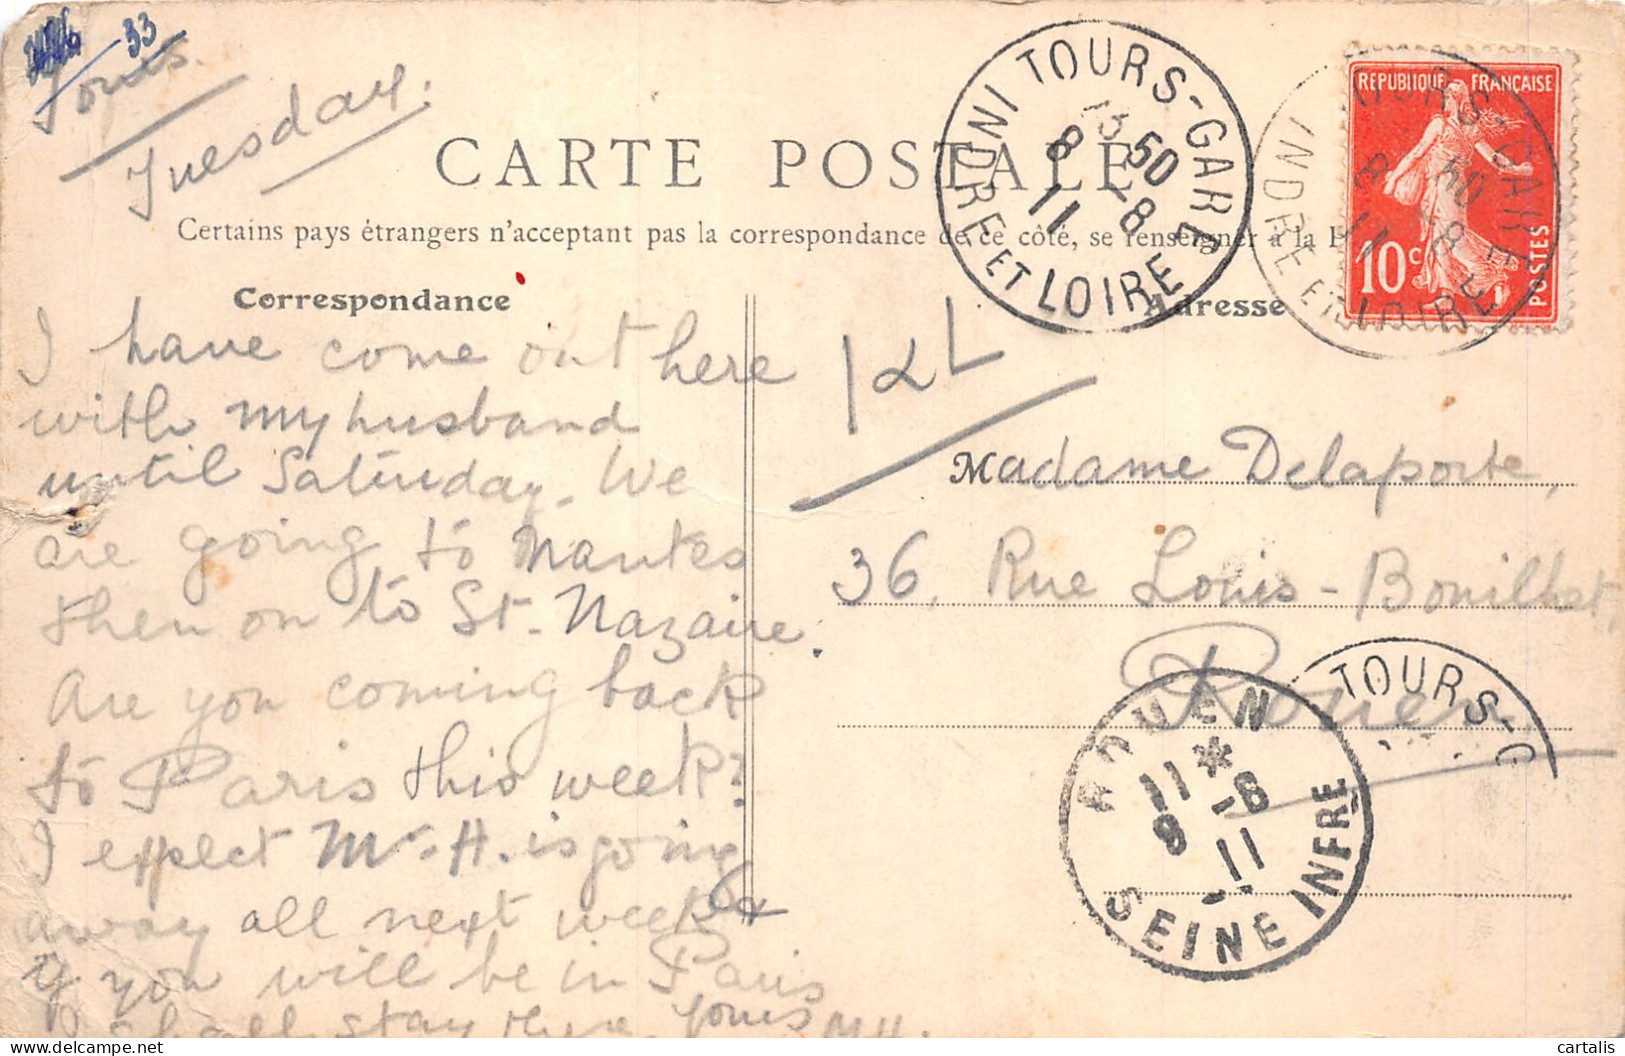 33
Tours.
Tuesday.
CARTE POSTALE
Certains pays étrangers n'acceptant pas la correspondance de ce côté, se renseigner à la
Correspondance
Adresse
I have come out here
with my husband
until Saturday. We
are going to Nantes
then on to St. Nazaire.
Are you coming back
to Paris this week?
I expect Mr. H. is going
away all next week &
if you will be in Paris
I shall stay there. Yours M.H.
Madame Delaporte,
36, Rue Louis-Bouilhet,
Rouen
TOURS-GARE
50
8 -8
11
INDRE ET LOIRE
REPUBLIQUE FRANÇAISE
10c
POSTES
TOURS-GARE
8 -8
11
INDRE ET LOIRE
TOURS-G
ROUEN
11 *
9 -8
11
SEINE INFRE
cartalis